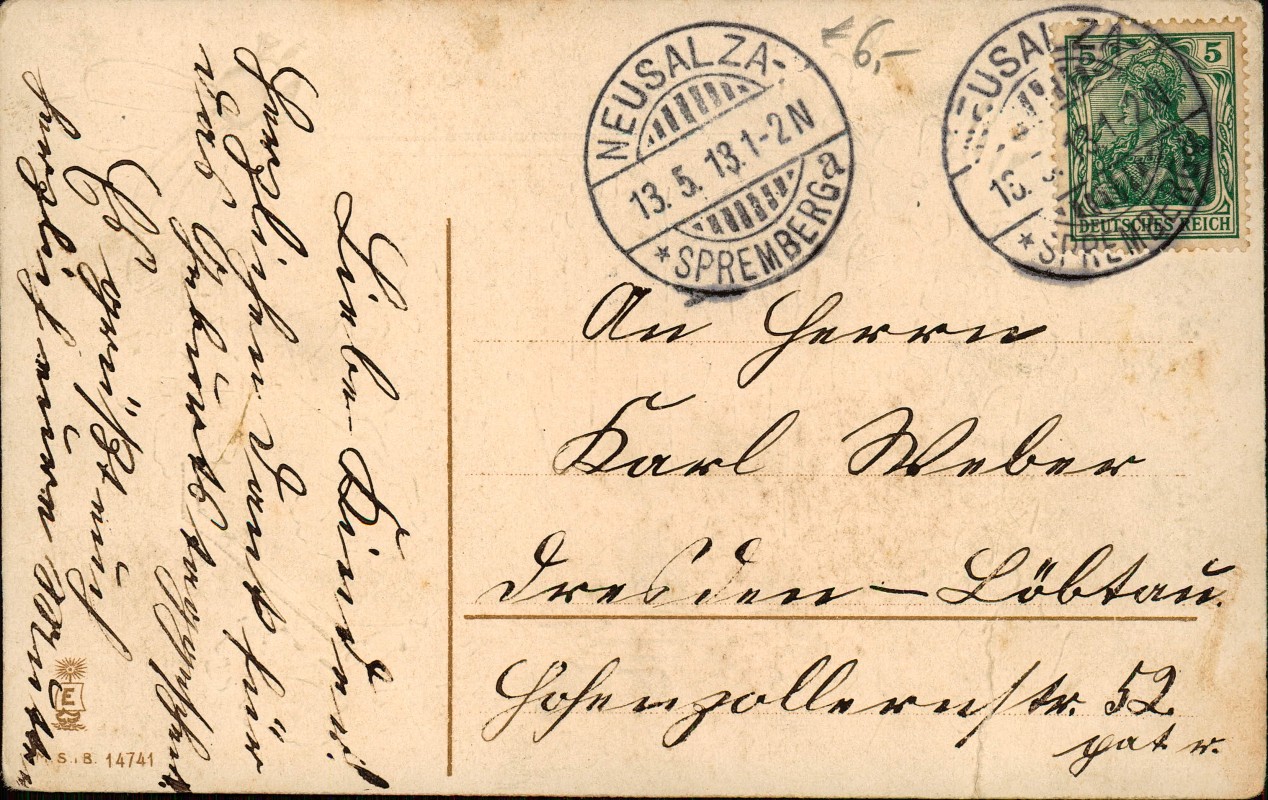 Liebe Kinder!
Herzlichen Dank für
das Geburtstagsgeschenk
Es grüßt Euch
herzlich eure Mutter
NEUSALZA-
13.5.13.1-2N
*SPREMBERG a
6,-
NEUSALZA-
13.1-2N
*SPREMBERG
5 5
DEUTSCHES REICH
An Herrn
Karl Weber
Dresden-Löbtau.
Hohenzollernstr. 52.
part r.
E
S.i.B. 14741